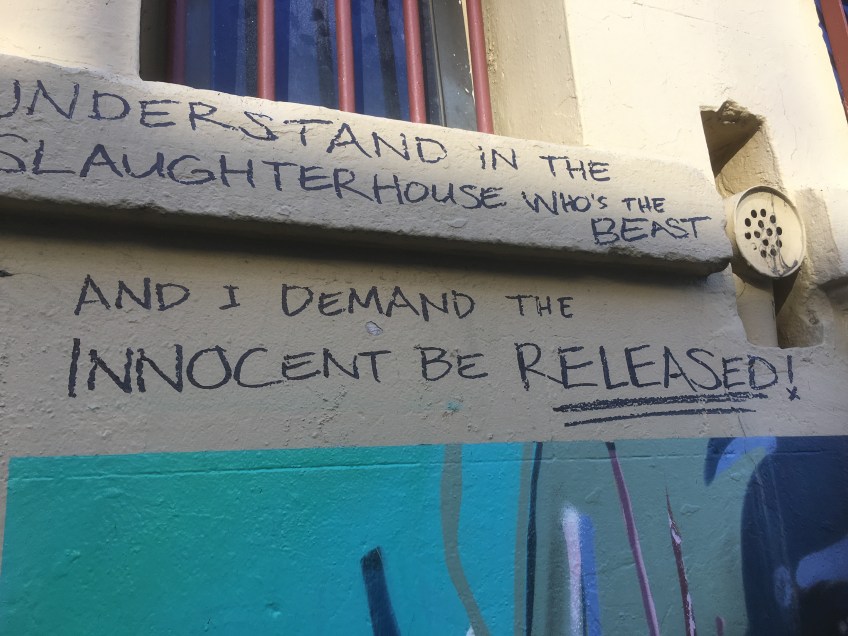 UNDERSTAND IN THE
SLAUGHTERHOUSE WHO'S THE
BEAST
AND I DEMAND THE
INNOCENT BE RELEASED!